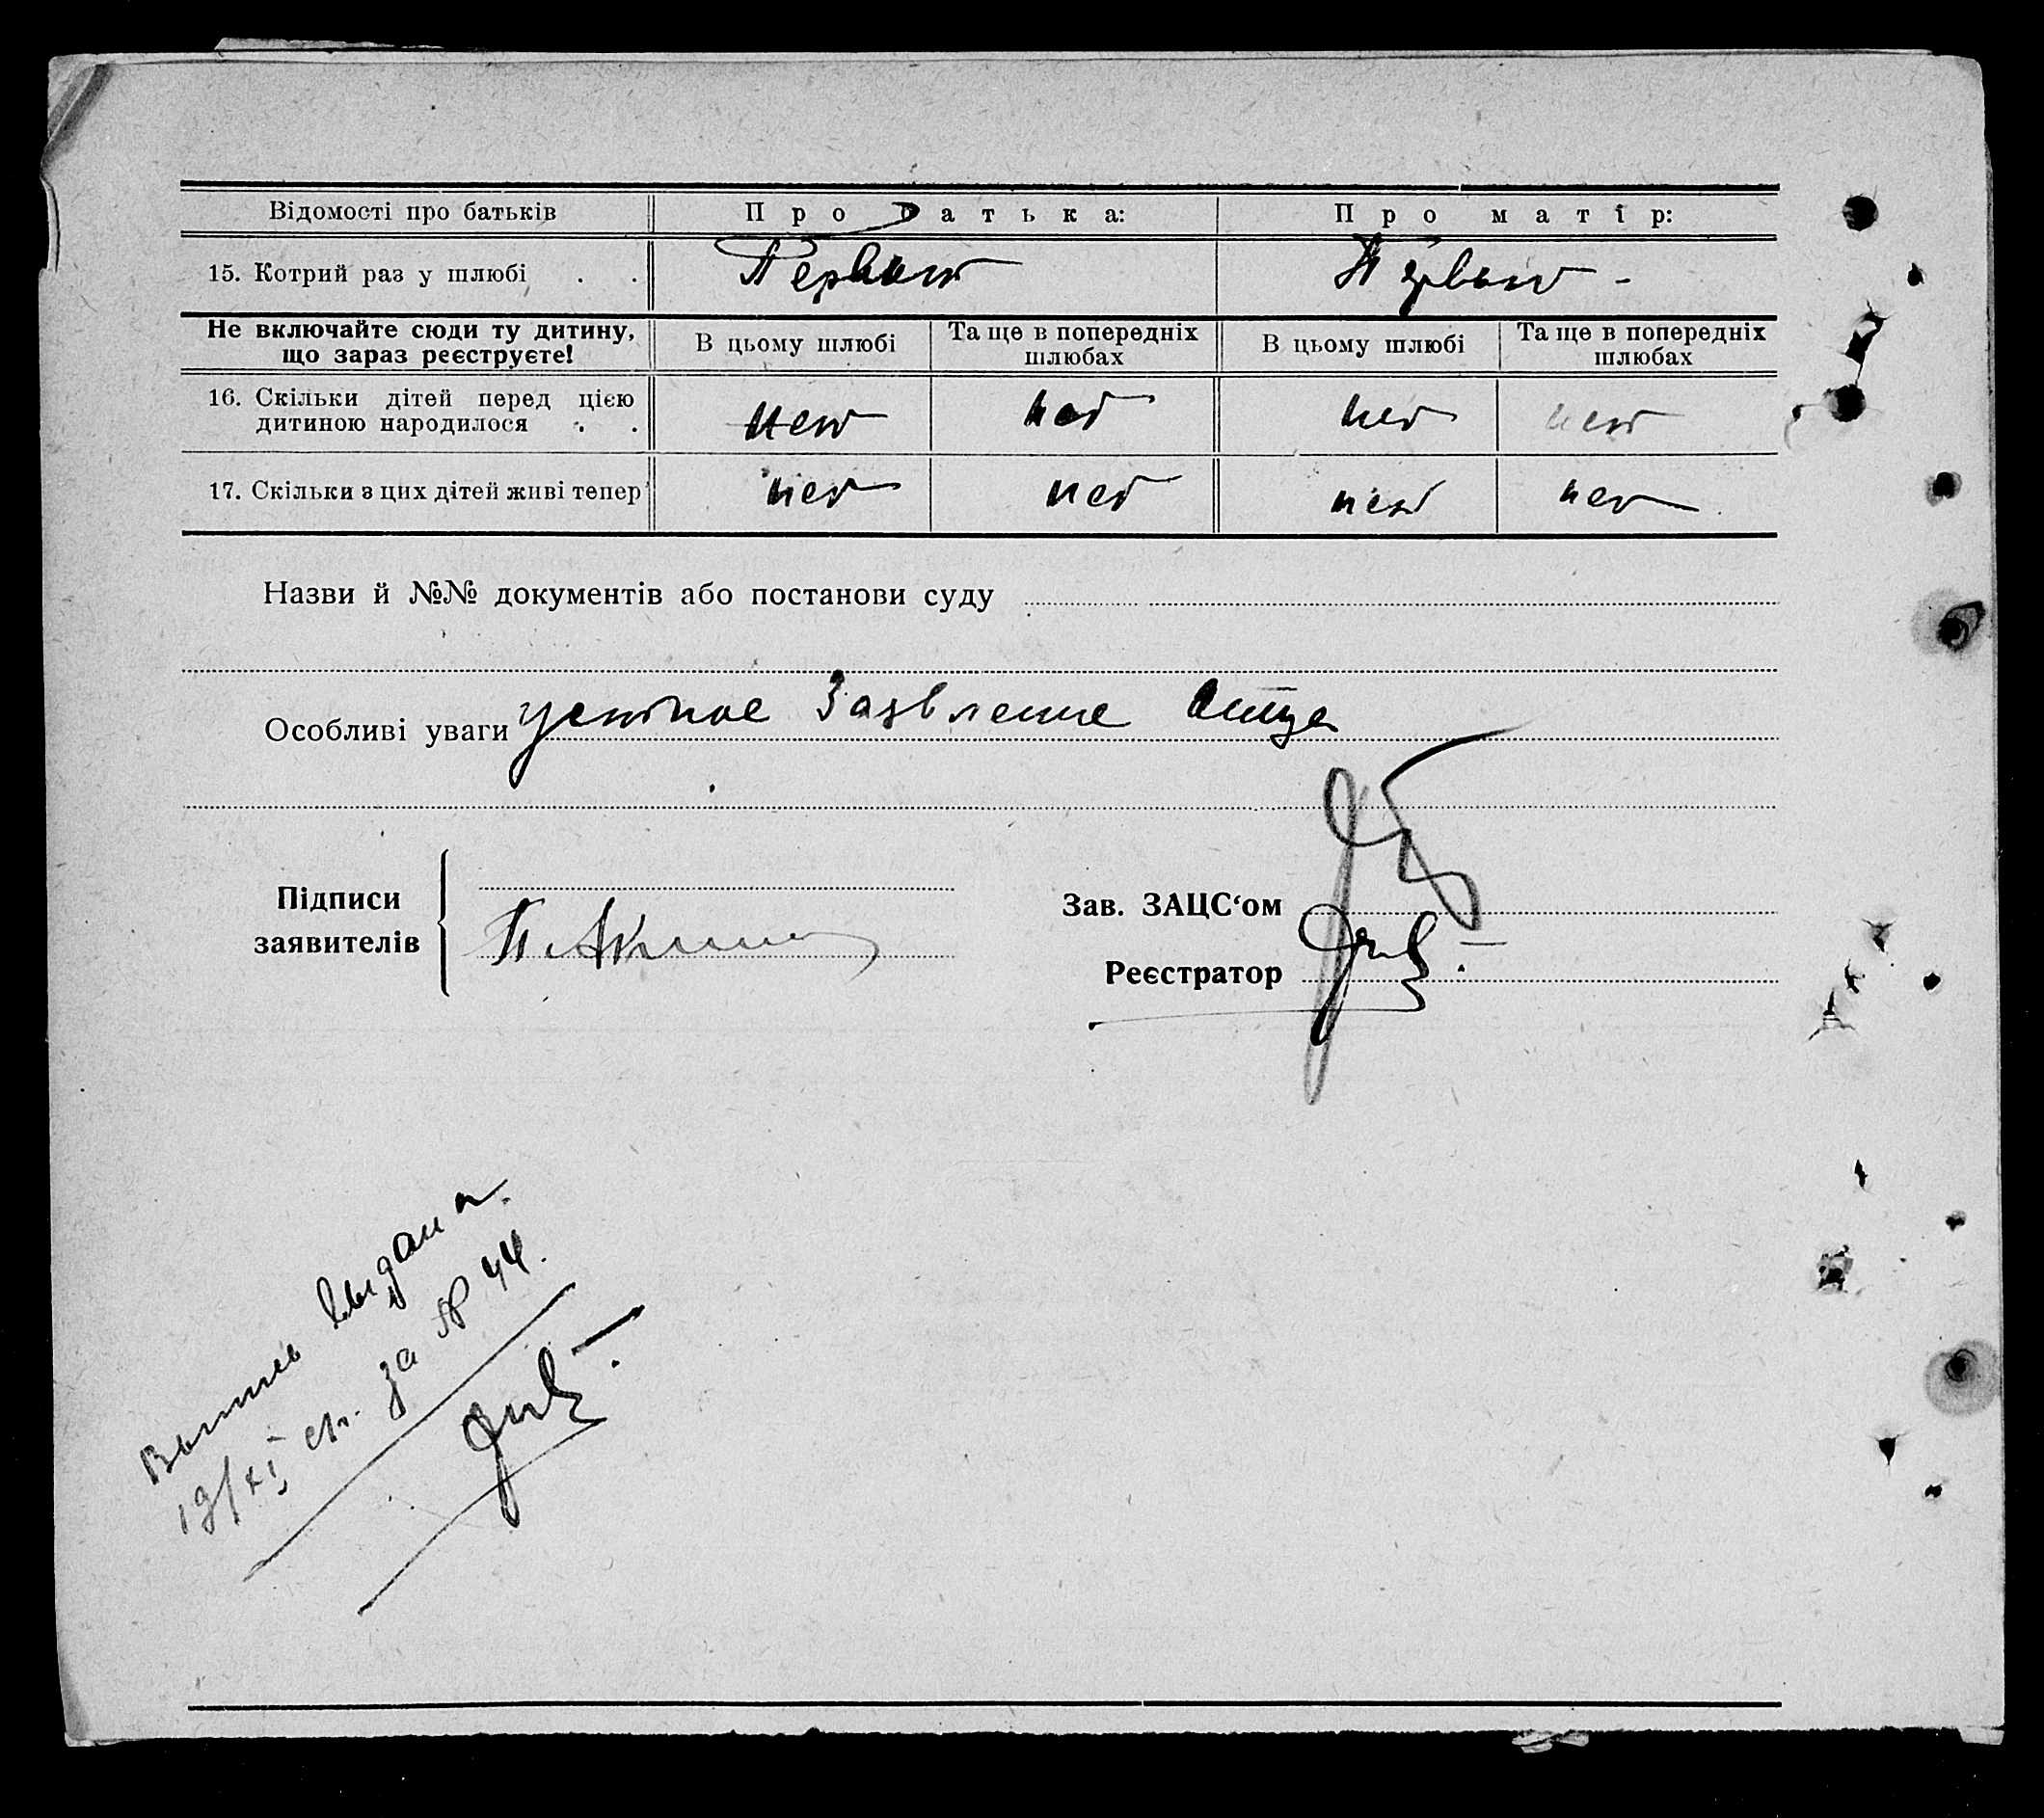 Відомості про батьків Про батька: Про матір:
15. Котрий раз у шлюбі . . Первый Первый -
Не включайте сюди ту дитину, що зараз реєструєте! В цьому шлюбі Та ще в попередніх шлюбах В цьому шлюбі Та ще в попередніх шлюбах
16. Скільки дітей перед цією дитиною народилося . . нет нет нет нет
17. Скільки з цих дітей живі тепер нет нет нет нет
Назви й №№ документів або постанови суду
Особливі уваги устное Заявление Отца
Підписи заявителів
Зав. ЗАЦС‘ом
Реєстратор
Выпись выдана.
19/XI за № 44.